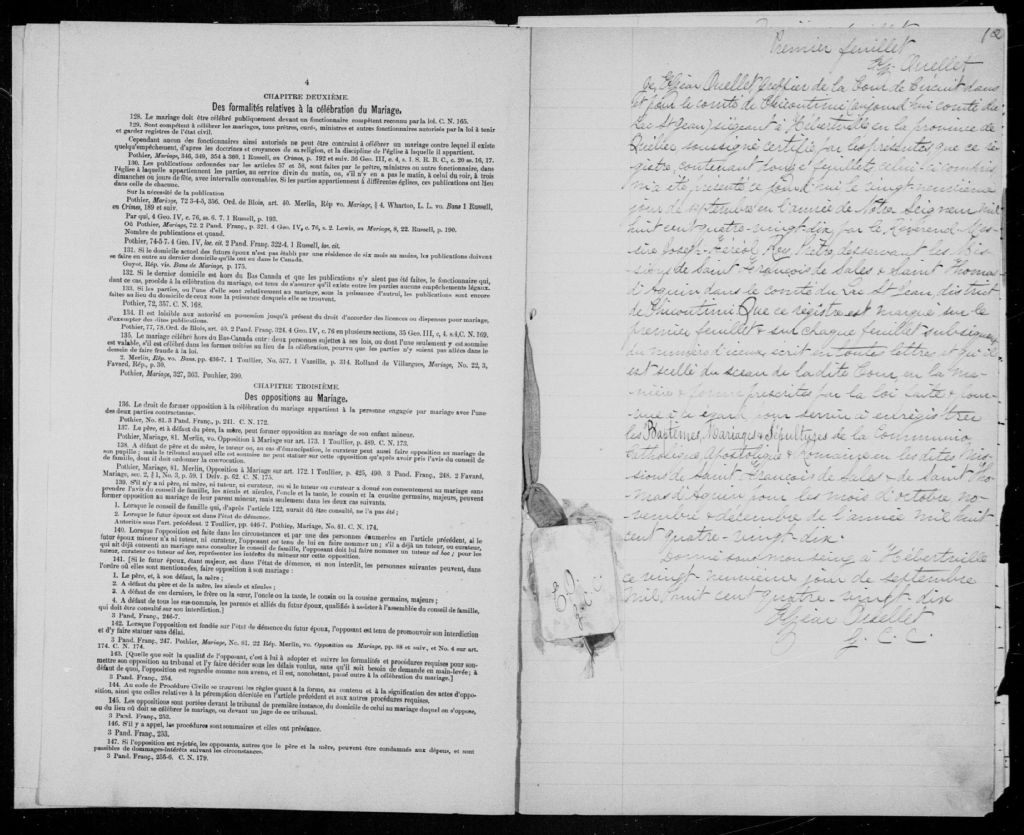 4
CHAPITRE DEUXIÈME.
Des formalités relatives à la célébration du Mariage.
128. Le mariage doit être célébré publiquement devant un fonctionnaire compétent reconnu par la loi. C. N. 165.
129. Sont compétents à célébrer les mariages, tous prêtres, curés, ministres et autres fonctionnaires autorisés par la loi à tenir
et garder registres de l'état civil.
Cependant aucun des fonctionnaires ainsi autorisés ne peut être contraint à célébrer un mariage contre lequel il existe
quelqu'empêchement, d'après les doctrines et croyances de sa religion, et la discipline de l'église à laquelle il appartient.
Pothier, Mariage, 346, 349, 354 à 360. 1 Russell, on Crimes, p. 192 et suiv. 36 Geo. III, c. 4, s. 1. S. R. B. C., c. 20 ss. 16, 17.
130. Les publications ordonnées par les articles 57 et 58, sont faites par le prêtre, ministre ou autre fonctionnaire, dans
l'église à laquelle appartiennent les parties, au service divin du matin, ou, s'il n'y en a pas le matin, à celui du soir, à trois
dimanches ou jours de fête, avec intervalles convenables. Si les parties appartiennent à différentes églises, ces publications ont lieu
dans celle de chacune.
Sur la nécessité de la publication
Pothier, Mariage, 72 3-4-5, 356. Ord. de Blois, art. 40. Merlin, Rép vo. Mariage, § 4. Wharton, L. L. vo. Bans 1 Russell,
on Crimes, 189 et suiv.
Par qui, 4 Geo. IV, c. 76, ss. 6. 7. 1 Russell, p. 193.
Où Pothier, Mariage, 72. 2 Pand. Franç. p. 321. 4 Geo. IV, c. 76, s. 2. Lewis, on Mariage, 8, 22. Russell, p. 190.
Nombre de publications et quand.
Pothier, 74-5-7. 4 Geo. IV, loc. cit. 2 Pand. Franç. 322-4. 1 Russell, loc. cit.
131. Si le domicile actuel des futurs époux n'est pas établi par une résidence de six mois au moins, les publications doivent
se faire en outre au dernier domicile qu'ils ont eu dans le Canada.
Guyot, Rép. vis. Bans de Mariage, p. 175.
132. Si le dernier domicile est hors du Bas-Canada et que les publications n'y aient pas été faites, le fonctionnaire qui,
dans ce cas, procède à la célébration du mariage, est tenu de s'assurer qu'il n'existe entre les parties aucuns empêchements légaux.
133. Si les parties, ou l'une d'elles sont relativement au mariage, sous la puissance d'autrui, les publications sont encore
faites au lieu du domicile de ceux sous la puissance desquels elle se trouvent.
Pothier, 72, 357. C. N. 168.
134. Il est loisible aux autorité en possession jusqu'à présent du droit d'accorder des licences ou dispenses pour mariage,
d'exempter des dites publications.
Pothier, 77, 78. Ord. de Blois, art. 40. 2 Pand. Franç. 324. 4 Geo. IV, c. 76 en plusieurs sections, 35 Geo. III, c. 4. s.4, C. N. 169.
135. Le mariage célébré hors du Bas-Canada entre deux personnes sujettes à ses lois, ou dont l'une seulement y est soumise
est valable, s'il est célébré dans les formes usitées au lieu de la célébration, pourvu que les parties n'y soient pas allées dans le
dessein de faire fraude à la loi.
2. Merlin, Rép. vo. Bans. pp. 436-7. 1 Toullier, No. 577. 1 Vazeille, p. 314. Rolland de Villargues, Mariage, No. 22, 3,
Favard, Rép., p. 30.
Pothier, Mariage, 327, 363. Pouhier, 390.
CHAPITRE TROISIÈME.
Des oppositions au Mariage.
136. Le droit de former opposition à la célébration du mariage appartient à la personne engagée par mariage avec l'une
des deux parties contractantes.
Pothier, No. 81. 3 Pand. Franç., p. 241. C. N. 172.
137. Le père, et à défaut du père, la mère, peut former opposition au mariage de son enfant mineur.
Pothier, Mariage, 81. Merlin, vo. Opposition à Mariage sur art. 173. 1 Toullier, p. 489. C. N. 173.
138. A défaut de père et de mère, le tuteur ou, au cas d'émancipation, le curateur peut aussi faire opposition au mariage de
son pupille; mais le tribunal auquel elle est soumise ne peut statuer sur cette opposition qu'après avoir pris l'avis du conseil de
famille, dont il doit ordonner la convocation.
Pothier, Mariage, 81. Merlin, Opposition à Mariage sur art. 172. 1 Toullier, p. 425, 490. 3 Pand. Franç., 248. 2 Favard,
Mariage, sec. 2, § 1, No. 3, p. 59. 1 Delv. p. 62. C. N. 175.
139. S'il n'y a ni père, ni mère, ni tuteur, ni curateur, ou si le tuteur ou curateur a donné son consentement au mariage sans
prendre l'avis du conseil de famille, les aïeuls et aïeules, l'oncle et la tante, le cousin et la cousine germains, majeurs, peuvent
former opposition au mariage de leur parent mineur, mais seulement dans les deux cas suivants.
1. Lorsque le conseil de famille qui, d'après l'article 122, aurait dû être consulté, ne l'a pas été;
2. Lorsque le futur époux est dans l'état de démence.
Autorités sous l'art. précédent. 2 Toullier, pp. 446-7. Pothier, Mariage, No. 81. C. N. 174.
140. Lorsque l'opposition est faite dans les circonstances et par une des personnes énumérées en l'article précédent, si le
futur époux mineur n'a ni tuteur, ni curateur, l'opposant est tenu de lui en faire nommer un; s'il a déjà un tuteur, ou curateur,
qui ait déjà consenti au mariage sans consulter le conseil de famille, l'opposant doit lui faire nommer un tuteur ad hoc; pour les
tuteur, curateur ou tuteur ad hoc, représenter les intérêts du mineur sur cette opposition.
141. [Si le futur époux, étant majeur, est dans l'état de démence, et non interdit, les personnes suivantes peuvent, dans
l'ordre où elles sont mentionnées, faire opposition à son mariage:
1. Le père, et, à son défaut, la mère;
2. A défaut du père et de la mère, les aïeuls et aïeules;
3. A défaut de ces derniers, le frère ou la sœur, l'oncle ou la tante, le cousin ou la cousine germains, majeurs;
4. A défaut de tous les sus-nommés, les parents et alliés du futur époux, qualifiés à assister à l'assemblée du conseil de famille,
qui doit être consulté sur son interdiction.]
3 Pand. Franç., 246-7.
142. Lorsque l'opposition est fondée sur l'état de démence du futur époux, l'opposant est tenu de promouvoir son interdiction
et d'y faire statuer sans délai.
3 Pand. Franç., 247. Pothier, Mariage, No. 81. 22 Rép. Merlin, vo. Opposition au Mariage, pp 88 et suiv., et No. 4 sur art.
174. C. N. 174.
143. [Quelle que soit la qualité de l'opposant, c'est à lui à adopter et suivre les formalités et procédures requises pour sou-
mettre son opposition au tribunal et l'y faire décider sous les délais voulus, sans qu'il soit besoin de demande en main-levée; à
défaut de quoi, l'opposition est regardée comme non avenu, et il est, nonobstant, passé outre à la célébration du mariage.]
3 Pand. Franç., 254.
144. Au code de Procédure Civile se trouvent les règles quant à la forme, au contenu et à la signification des actes d'oppo-
sition, ainsi que celles relatives à la péremption décrétée en l'article précédent et aux autres procédures requises.
145. Les oppositions sont portées devant le tribunal de première instance, du domicile de celui au mariage duquel on s'oppose,
ou du lieu où doit se célébrer le mariage, ou devant un juge de ce tribunal.
3 Pand. Franç., 253.
146. S'il y a appel, les procédures sont sommaires et elles ont préséance.
3 Pand. Franç., 253.
147. Si l'opposition est rejetée, les opposants, autres que le père et la mère, peuvent être condamnés aux dépens, et sont
passibles de dommages-intérêts suivant les circonstances.
3 Pand. Franç., 255-6. C. N. 179.
Premier feuillet
Ej. Ouellet
Je, Eljéar Ouellet Greffier de la Cour de Circuit dans
et pour le comté de Chicoutimi (aujourd'hui comté du
Lac St Jean) siégeant à Hébertville en la province de
Québec soussigné certifie par ces présentes que ce re-
gistre, contenant feuillets, celui-ci compris
m'a été présenté ce jourd'hui le vingt neuvième
jour de septembre en l'année de Notre Seigneur mil
huit cent quatre-vingt-dix par le Révérend Mes-
sire Joseph Roy Ptre, desservant les Mis-
sions de Saint-François de Sales & Saint Thomas
d'Aquin dans le comté du Lac St Jean, district
de Chicoutimi. Que ce registre est marqué sur le
premier feuillet & sur chaque feuillet subséquent
du numéro d'iceux, écrit en toute lettre, et qu'il
est scellé du sceau de la dite Cour, en la ma-
nière & forme prescrites par la loi faite & pour-
vue à cet égard pour servir à enregistrer
les Baptêmes, Mariages & Sépultures de la Communion
Catholique Apostolique & Romaine en les dites Mis-
sions de Saint-François de Sales & de Saint Tho-
mas d'Aquin pour les mois d'octobre no-
vembre & décembre de l'année mil huit
cent quatre-vingt-dix.
Donné sous mon seing à Hébertville
ce vingt-neuvième jour de septembre
mil huit cent quatre-vingt dix
Eljéar Ouellet
G. C. C.